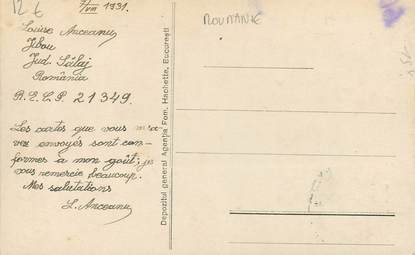 12 6
7/VII 1931.
ROUMANIE
Louise Anceanu
Jibou
Jud. Sălaj
România
R.E.C.P. 21349.
Les cartes que vous m'a-
vez envoyés sont con-
formes à mon goût; je
vous remercie beaucoup.
Mes salutations
L. Anceanu
Depozitul general Agenția Fon. Hachette, București